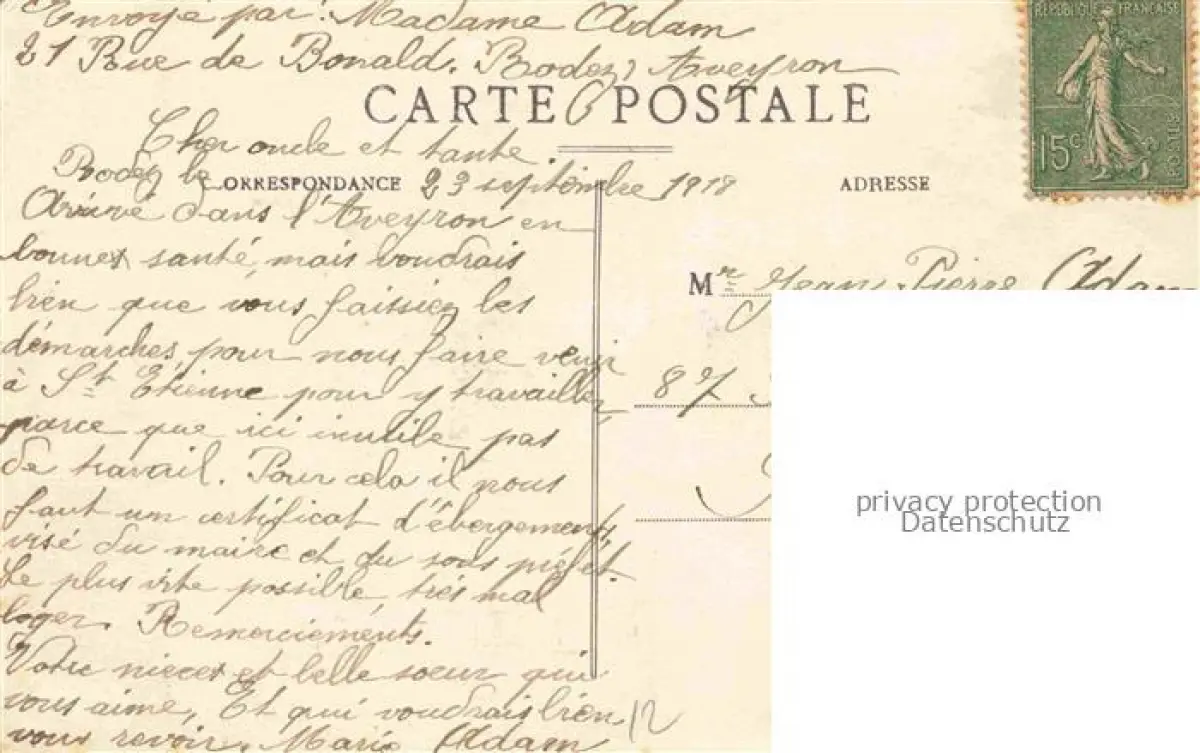 Envoyé par: Madame Adam
21 Rue de Bonald. Rodez, Aveyron
CARTE POSTALE
Cher oncle et tante.
Rodez le 23 septembre 1918
CORRESPONDANCE
Arrivé dans l'Aveyron en
bonnes santé, mais voudrais
bien que vous faissiez les
démarches, pour nous faire venir
à St Etienne pour y travailler,
parce que ici inutile pas
de travail. Pour cela il nous
faut un certificat d'ébergements,
visé du maire et du sous préfet.
Le plus vite possible, très mal
loger. Remerciements.
Votre nieces et belle soeur qui
vous aime, Et qui voudrais bien
vous revoir. Marie Adam
12
ADRESSE
Mr Jean Pierre Adam
87
REPUBLIQUE FRANÇAISE
15c
POSTES
privacy protection
Datenschutz